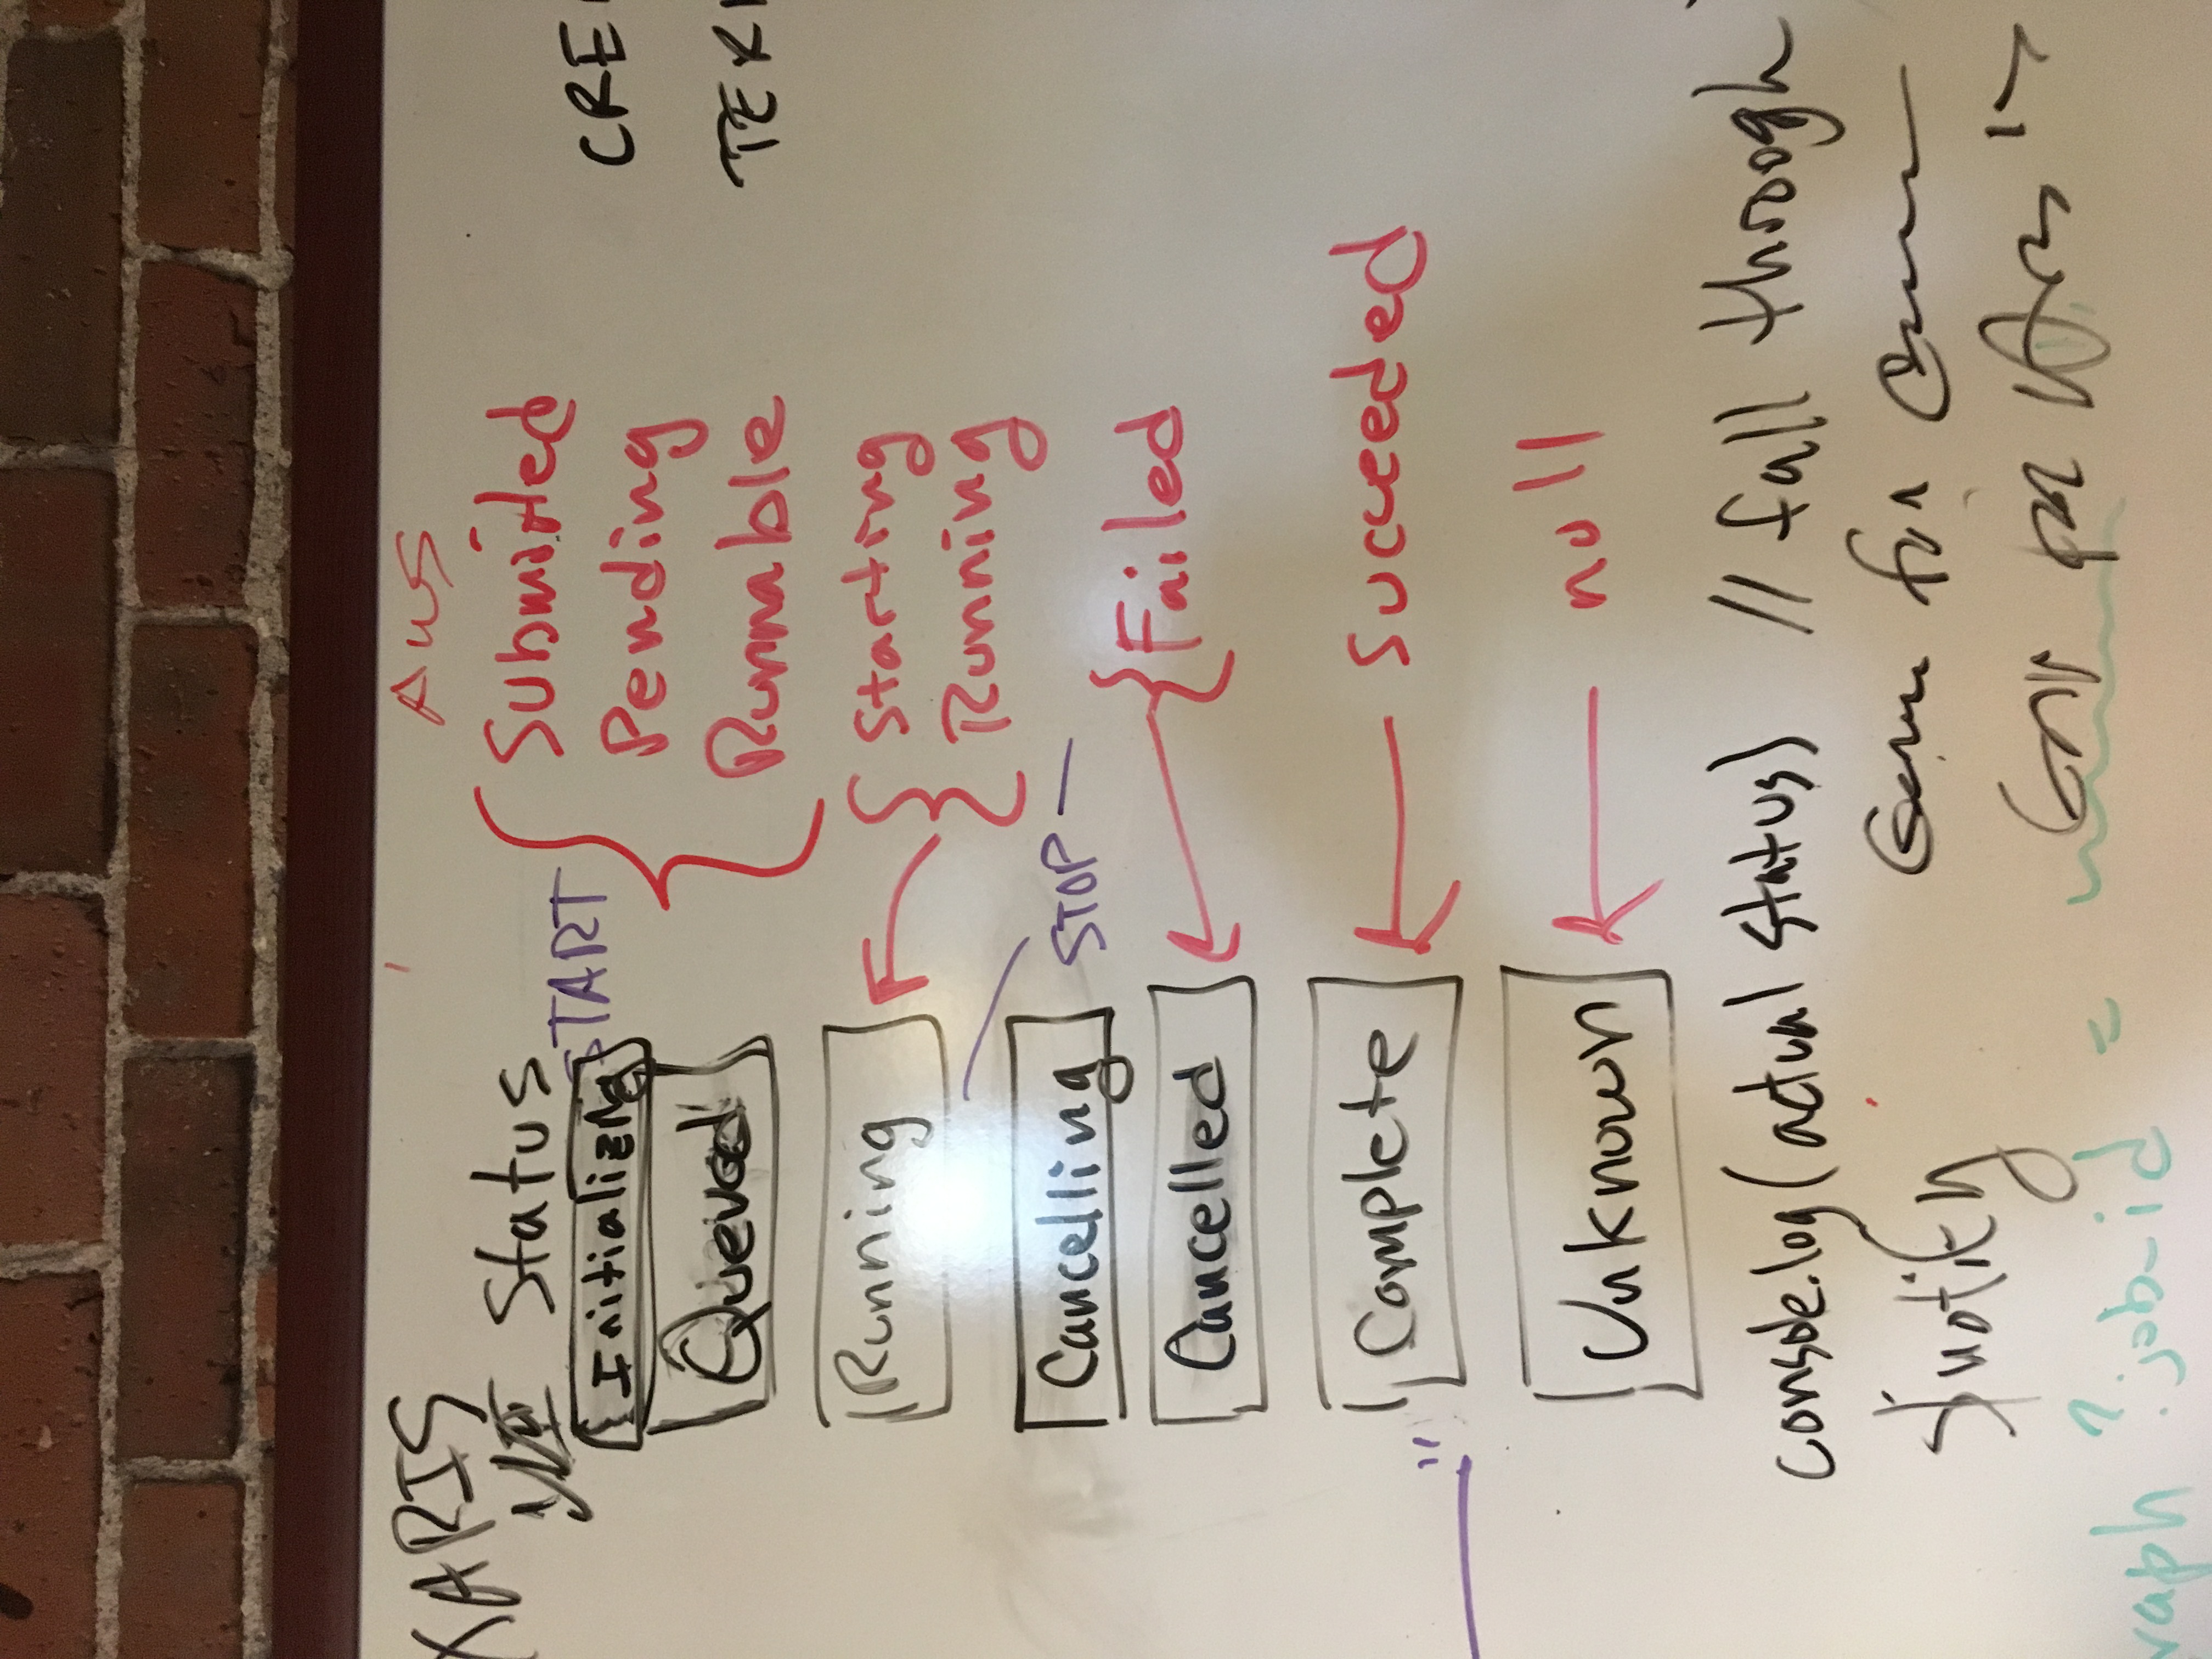 AWS
XARIS
Status
CRE
START
Initializing
Submitted
TER
Queued
Pending
Runnable
Running
Starting
Running
STOP
Cancelling
Cancelled
Failed
Complete
Succeeded
Unknown
null
console.log(actual status) // fall through
notify
?.job-id =